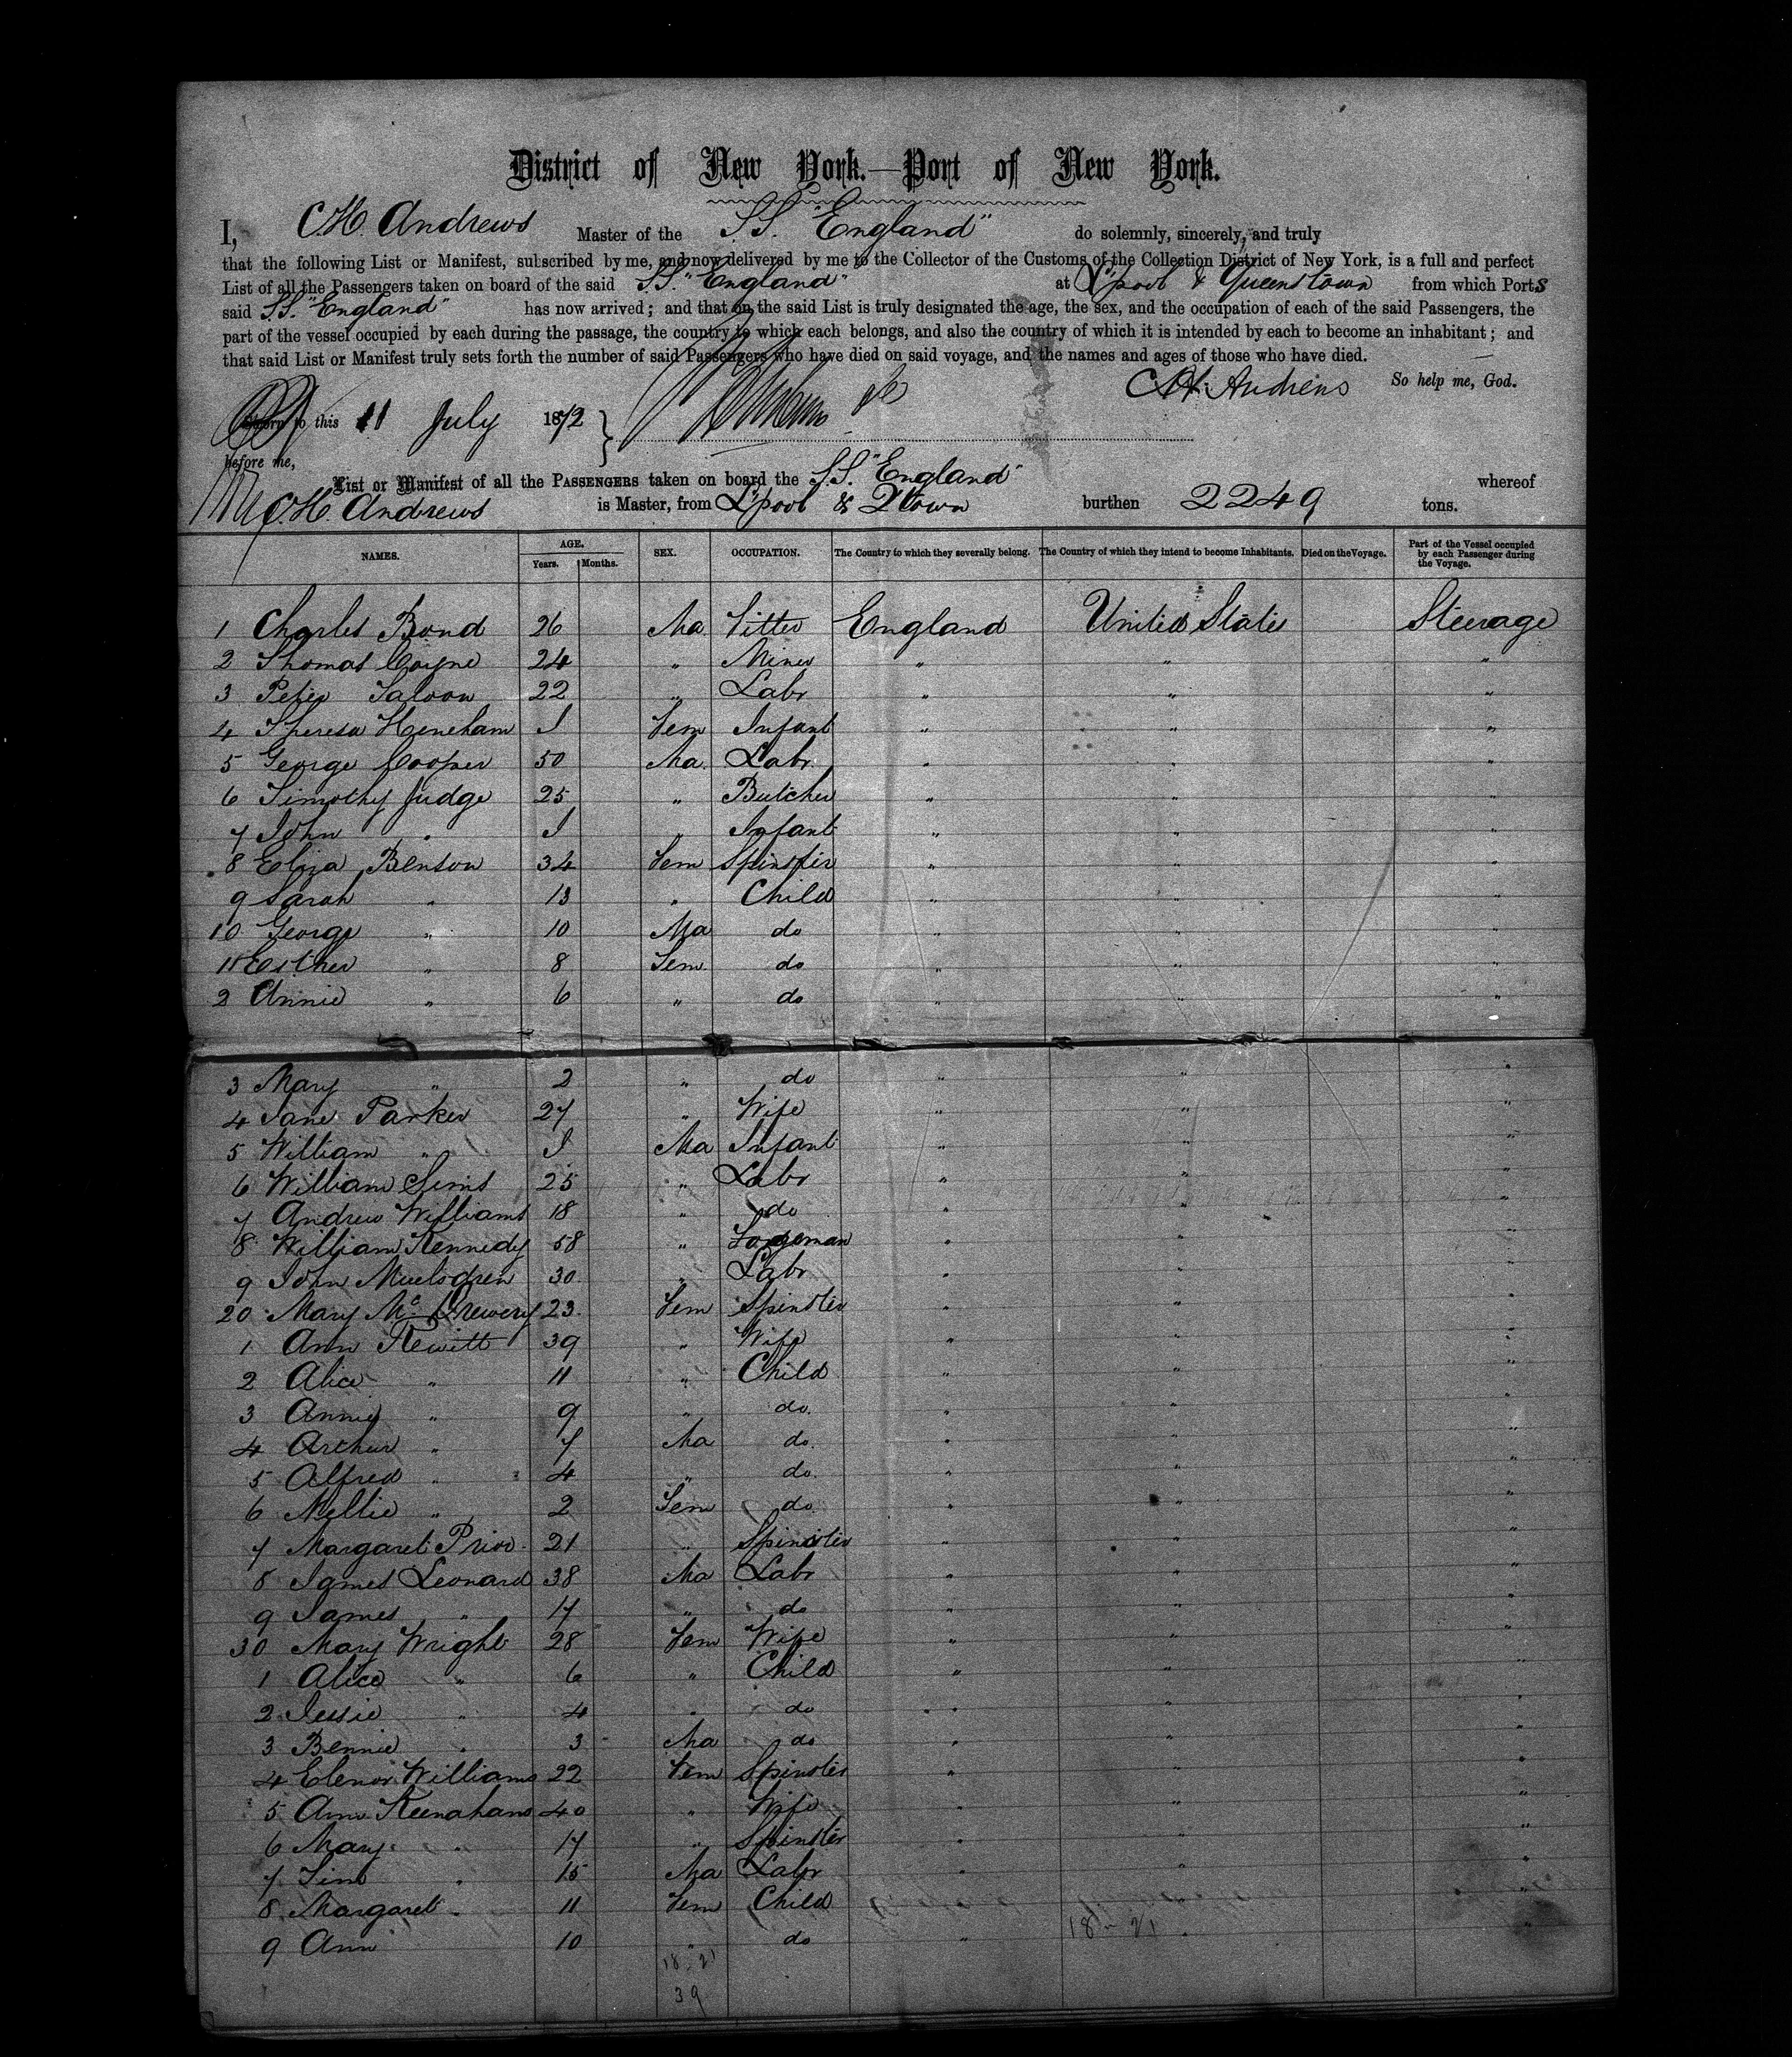 District of New York.—Port of New York.
I, C.H. Andrews Master of the S.S. "England" do solemnly, sincerely, and truly
that the following List or Manifest, subscribed by me, and now delivered by me to the Collector of the Customs of the Collection District of New York, is a full and perfect
List of all the Passengers taken on board of the said S.S. "England" at L'pool & Queenstown from which Ports
said S.S. "England" has now arrived; and that on the said List is truly designated the age, the sex, and the occupation of each of the said Passengers, the
part of the vessel occupied by each during the passage, the country to which each belongs, and also the country of which it is intended by each to become an inhabitant; and
that said List or Manifest truly sets forth the number of said Passengers who have died on said voyage, and the names and ages of those who have died.
So help me, God.
CH. Andrews
Sworn to this 11 July 1872
before me,
List or Manifest of all the PASSENGERS taken on board the S.S. "England" whereof
C.H. Andrews is Master, from L'pool & Qtown burthen 2249 tons.
NAMES. AGE. Years. Months. SEX. OCCUPATION. The Country to which they severally belong. The Country of which they intend to become Inhabitants. Died on the Voyage. Part of the Vessel occupied by each Passenger during the Voyage.
1 Charles Bond 26 Ma Fitter England United States Steerage
2 Thomas Coyne 24 " Miner " " "
3 Peter Saloon 22 " Labr " " "
4 Theresa Heneham I Fem Infant " " "
5 George Cooper 50 Ma. Labr. " " "
6 Timothy Judge 25 " Butcher " " "
7 John " I " Infant " " "
8 Eliza Benson 34 Fem Spinster " " "
9 Sarah " 13 " Child " " "
10 George " 10 Ma do " " "
11 Esther " 8 Fem. do " " "
2 Annie " 6 " do " " "
3 Mary " 2 " do " " "
4 Jane Parker 27 " Wife " " "
5 William " I Ma Infant " " "
6 William Sims 25 " Labr " " "
7 Andrew Williams 18 " do " " "
8 William Kennedy 58 " " " "
9 John 30 " Labr " " "
20 Mary Mc 23 Fem Spinster " " "
1 Ann Hewitt 39 " Wife " " "
2 Alice " 11 " Child " " "
3 Annie " 9 " do. " " "
4 Arthur " 7 Ma do. " " "
5 Alfred " 4 " do. " " "
6 Nellie " 2 Fem do " " "
7 Margaret Prior 21 " Spinster " " "
8 James Leonard 38 Ma Labr " " "
9 James " 17 " do " " "
30 Mary Wright 28 Fem Wife " " "
1 Alice " 6 " Child " " "
2 Jessie " 4 " do " " "
3 Bennie " 3 Ma do " " "
4 Elenor Williams 22 Fem Spinster " " "
5 Ann Keenahans 40 " Wife " " "
6 Mary " 17 " Spinster " " "
7 Tim " 15 Ma Labr " " "
8 Margaret " 11 Fem Child " " "
9 Ann 10 " do " " "
18 21
18 21
39